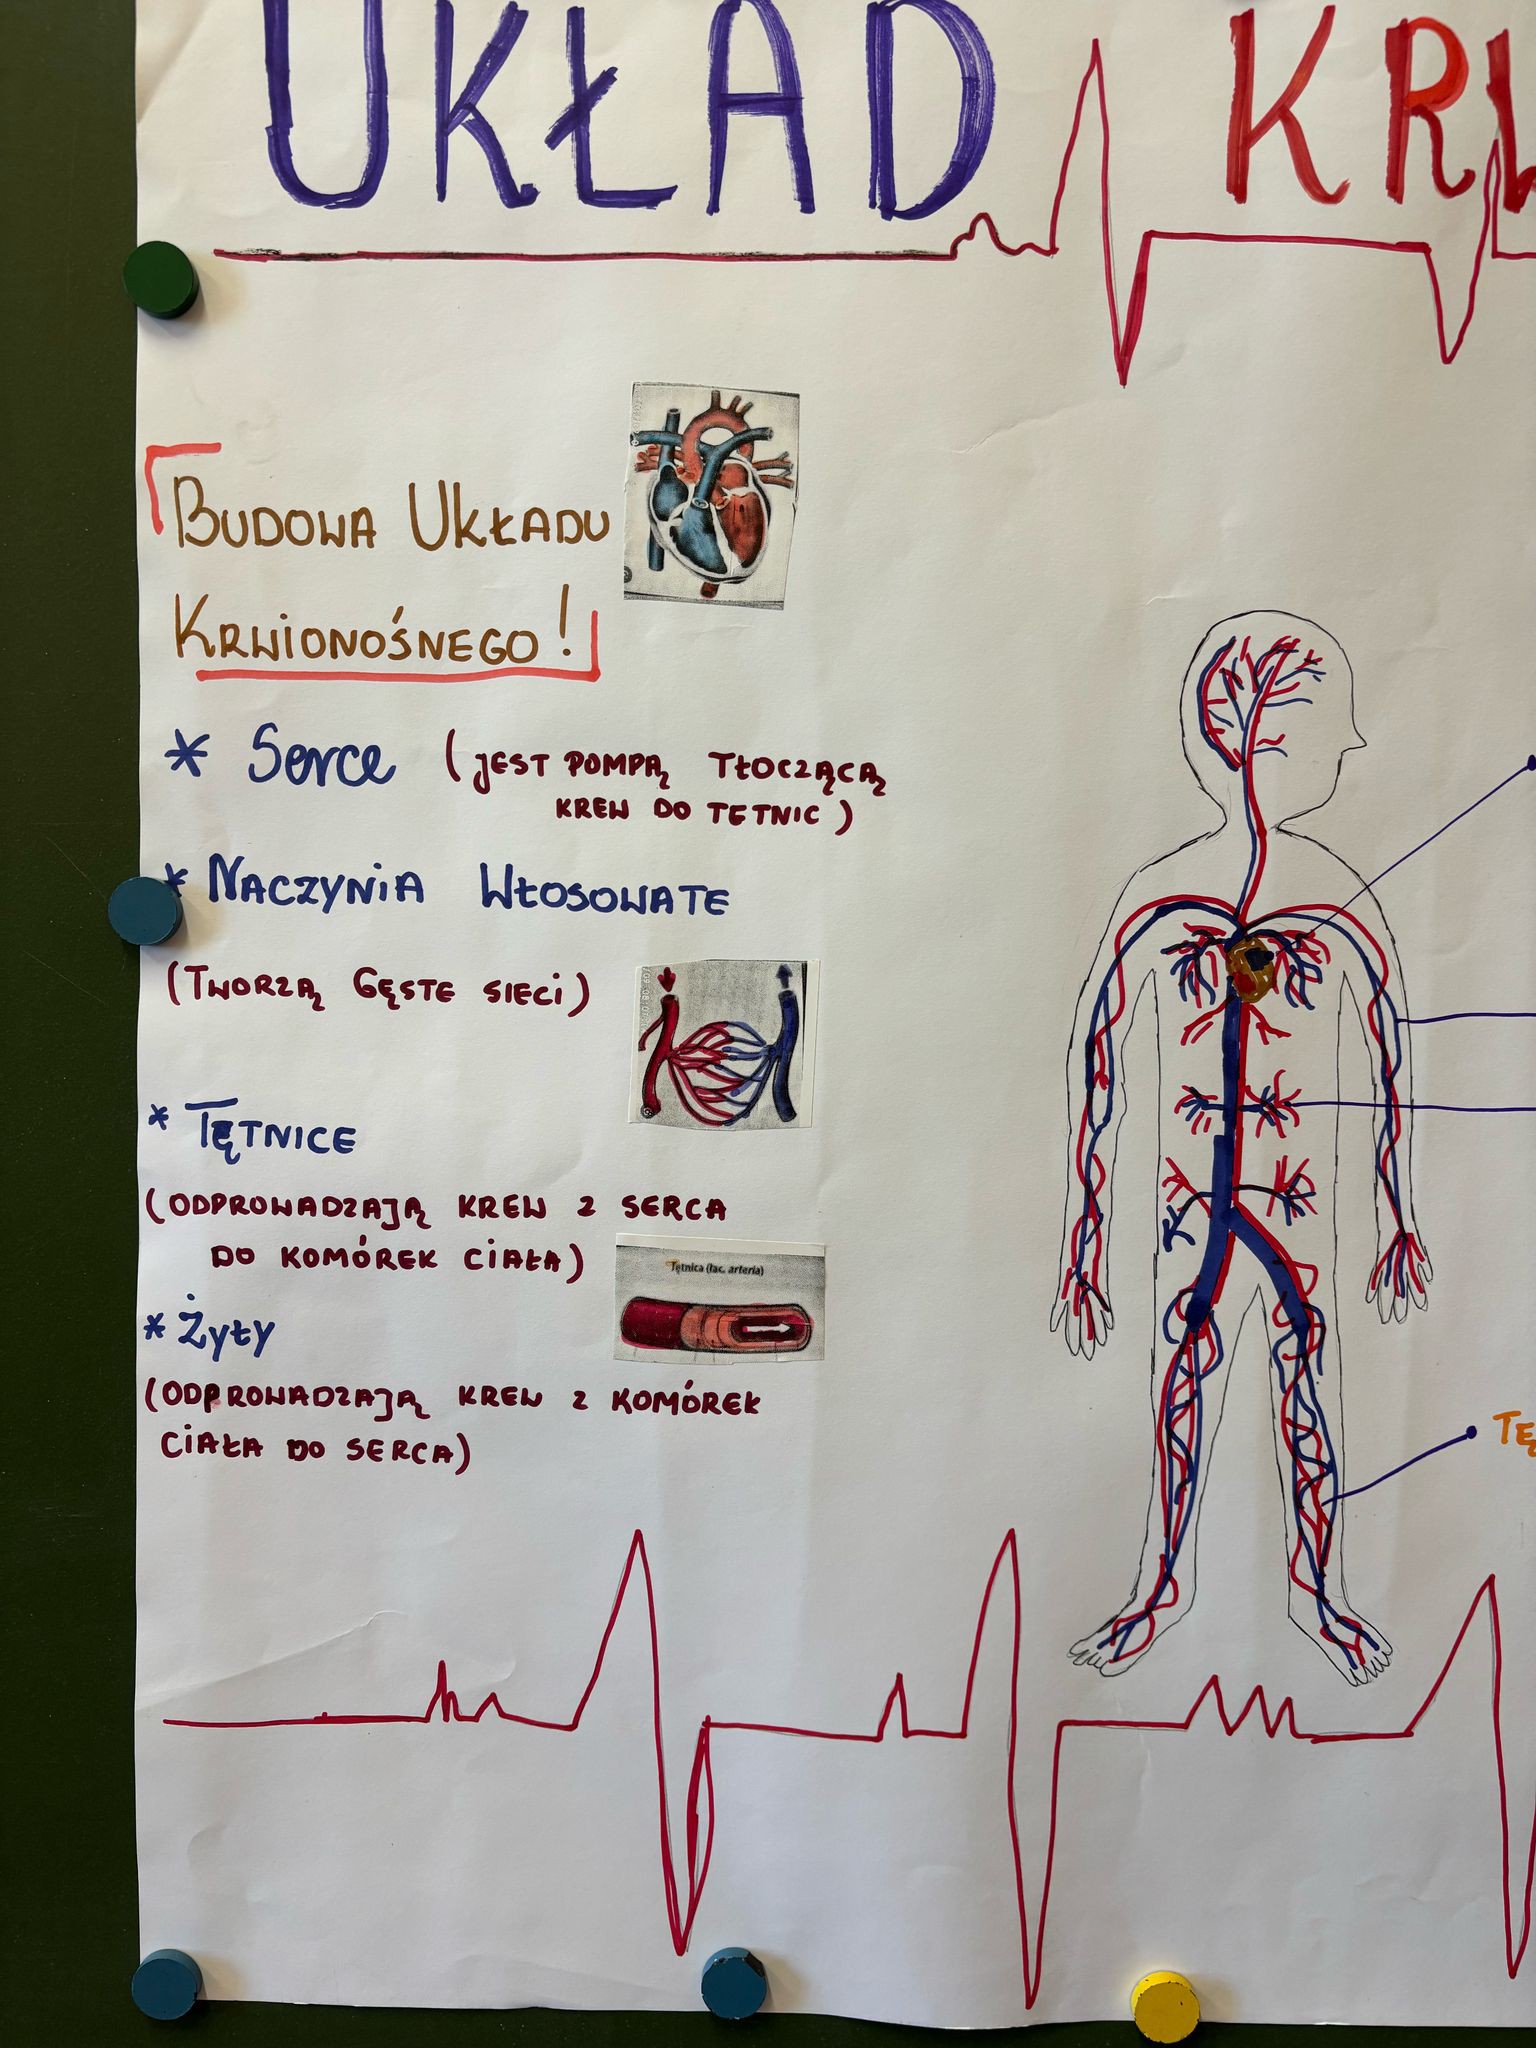 UKŁAD KRW
BUDOWA UKŁADU
KRWIONOŚNEGO!
* Serce (JEST POMPĄ TŁOCZĄCĄ
KREW DO TĘTNIC)
* NACZYNIA WŁOSOWATE
(TWORZĄ GĘSTE SIECI)
* TĘTNICE
(ODPROWADZAJĄ KREW Z SERCA
DO KOMÓREK CIAŁA)
Tętnica (łac. arteria)
* Żyły
(ODPROWADZAJĄ KREW Z KOMÓREK
CIAŁA DO SERCA)
TĘ